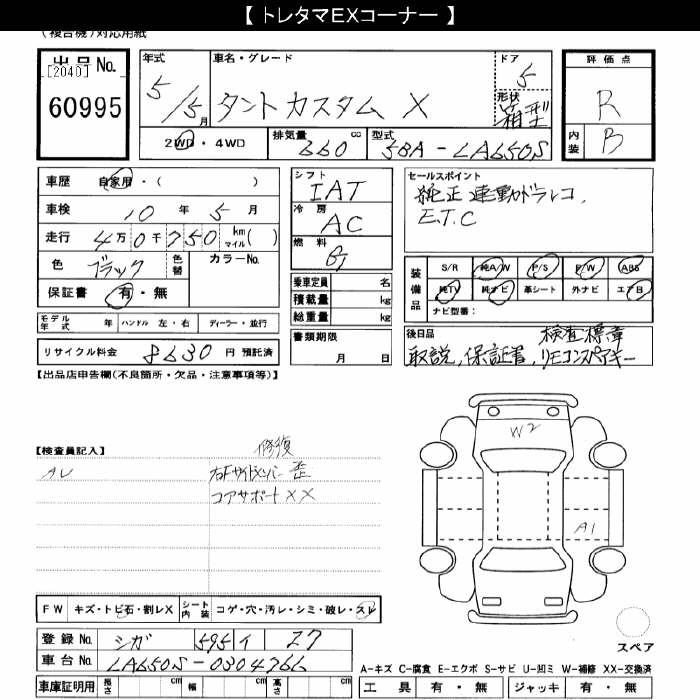 【 トレタマEXコーナー 】
(複合機)対応用紙
出品No.
[2040]
60995
年式
5/5月
車名・グレード
タント カスタム X
ドア
5
形状
箱型
評価点
R
内装
B
2WD・4WD
排気量
660 cc
型式
5BA-LA650S
車歴 自家用・( )
車検 10年 5月
走行 4万0千750 km マイル( )
色 ブラック 色替 カラーNo.
保証書 有・無
モデル年式 年 ハンドル 左・右 ディーラー・並行
リサイクル料金 8630 円 預託済
シフト
IAT
冷房
AC
燃料
G
乗車定員 名
積載量 kg
総重量 kg
書類期限
月 日
セールスポイント
純正連動ドラレコ、
E.T.C
装備品
S/R 純A/W P/S P/W ABS
純TV 純ナビ 革シート 外ナビ エアB
ナビ型番:
後日品 検査標章
取説、保証書、リモコンスペアキー
【出品店申告欄(不良箇所・欠品・注意事項等)】
【検査員記入】
修復
右Fサイドメンバー歪
コアサポートXX
W2
A1
FW キズ・トビ石・割レX シート内装 コゲ・穴・汚レ・シミ・破レ・スレ
登録No. シガ 595 イ 27
車台No. LA650S-0304766
車庫証明用 長さ cm 幅 cm 高さ cm
スペア
A-キズ C-腐食 E-エクボ S-サビ U-凹ミ W-補修 XX-交換済
工具 有・無 ジャッキ 有・無